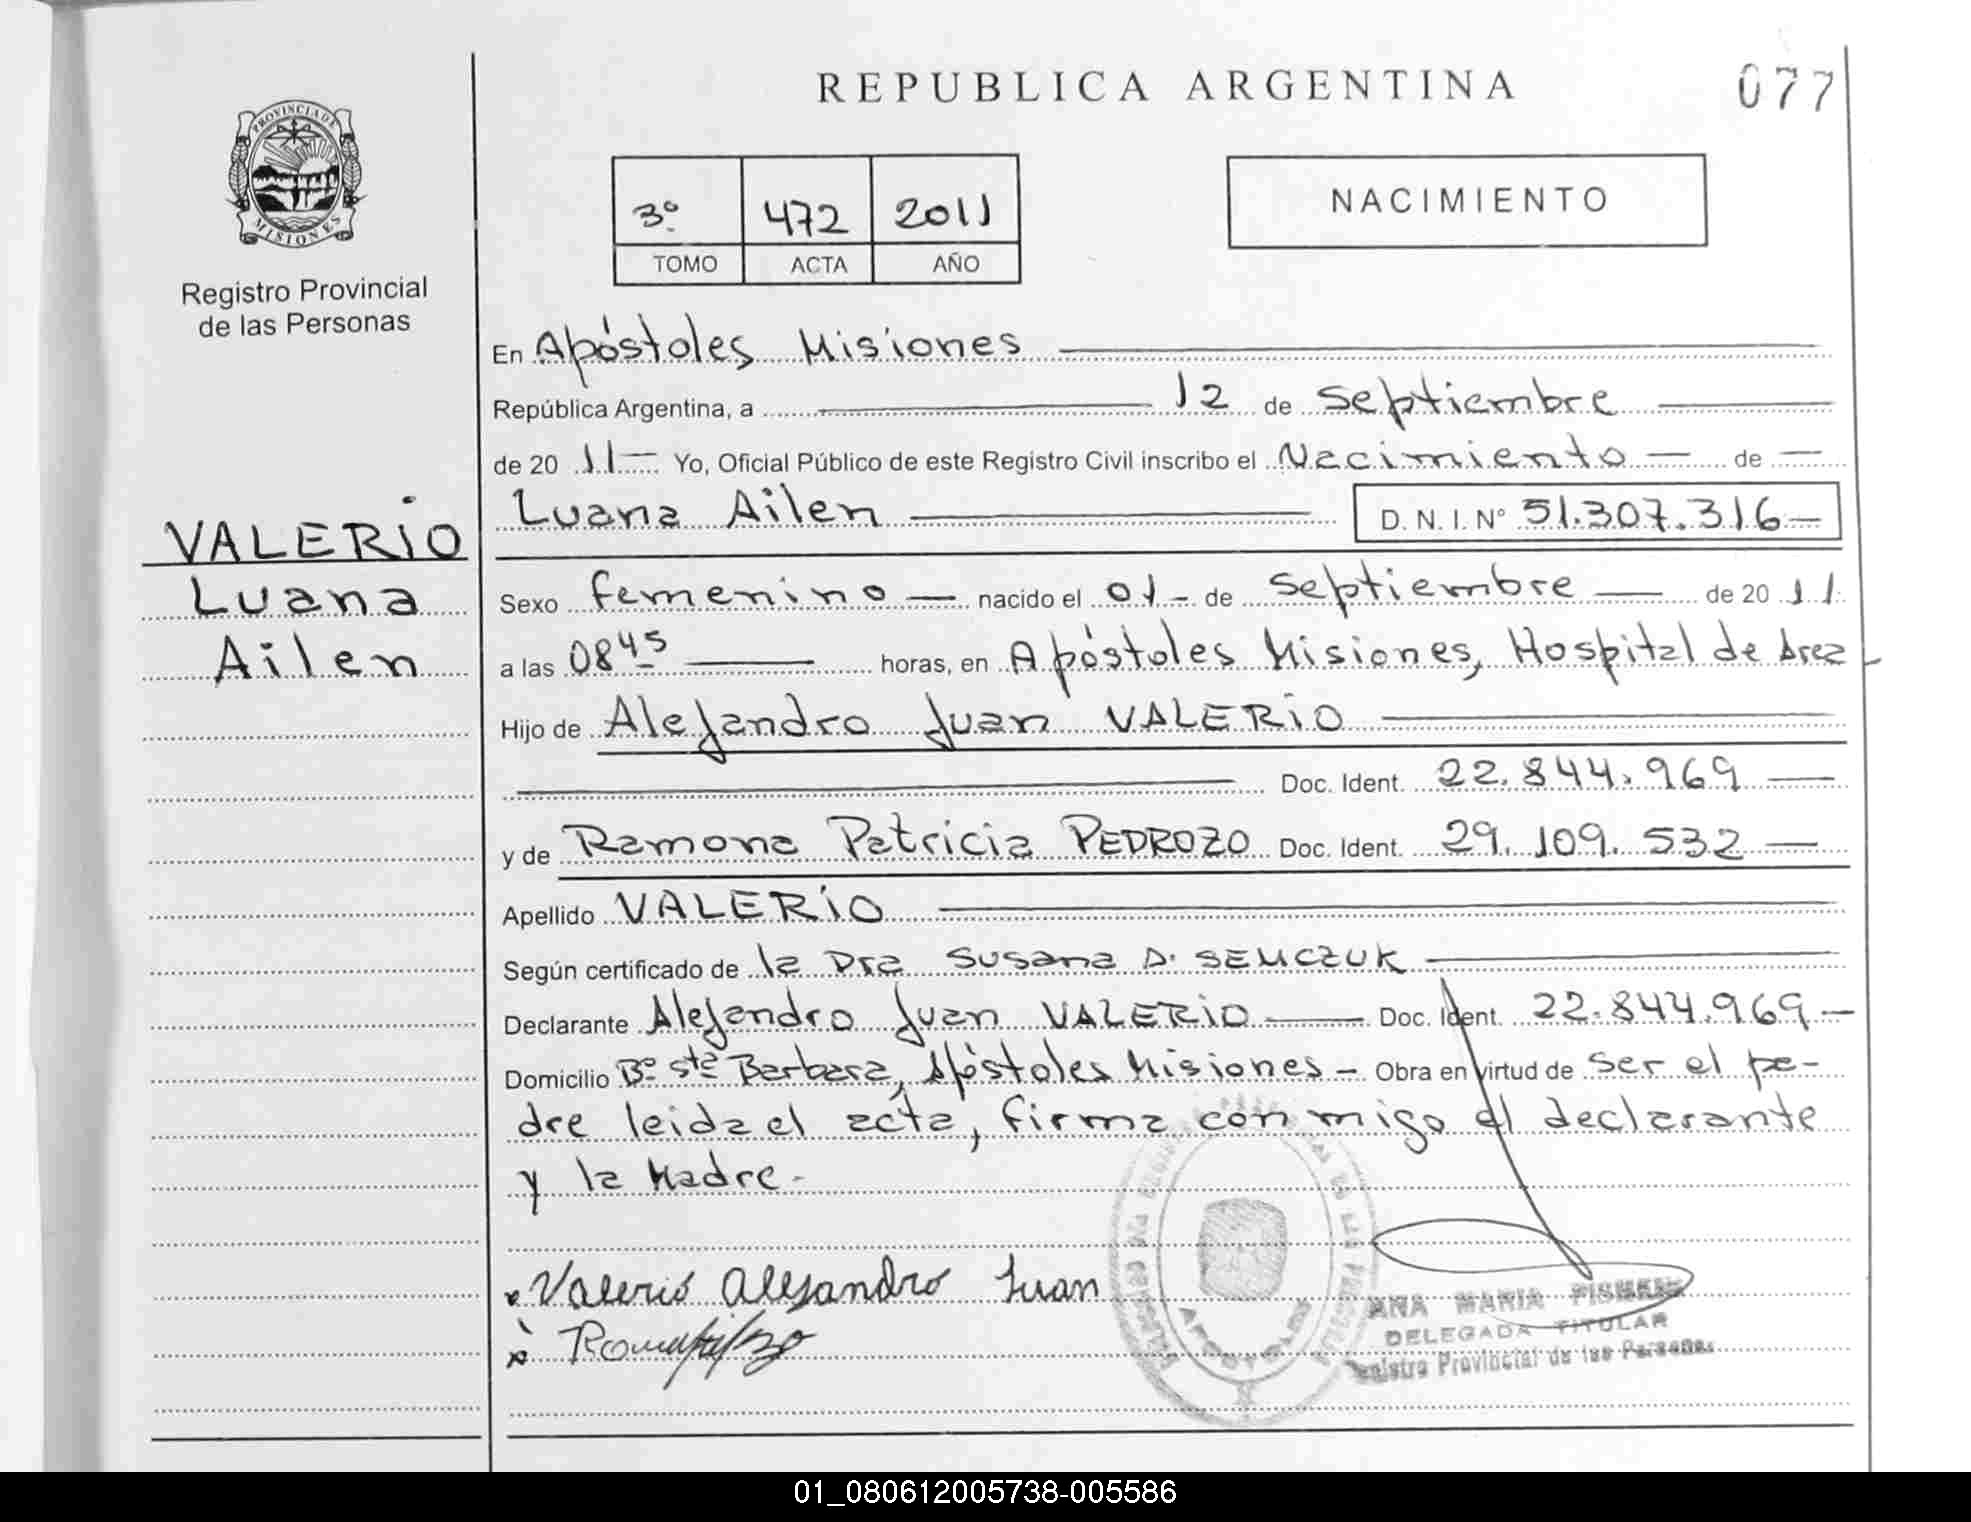 REPUBLICA ARGENTINA
077
PROVINCIA DE
MISIONES
Registro Provincial
de las Personas
3º 472 2011
TOMO ACTA AÑO
NACIMIENTO
En Apóstoles Misiones
República Argentina, a 12 de Septiembre
de 20 11 Yo, Oficial Público de este Registro Civil inscribo el Nacimiento de
VALERIO
Luana
Ailen
Luana Ailen D. N. I. Nº 51.307.316
Sexo femenino nacido el 01 de Septiembre de 20 11
a las 08 45 horas, en Apóstoles Misiones, Hospital de Area
Hijo de Alejandro Juan VALERIO
Doc. Ident. 22.844.969
y de Ramona Patricia PEDROZO Doc. Ident. 29.109.532
Apellido VALERIO
Según certificado de la Dra Susana D. SEMCZUK
Declarante Alejandro Juan VALERIO Doc. Ident. 22.844.969
Domicilio Bº Sta Barbara, Apóstoles Misiones - Obra en virtud de ser el pa-
dre leida el acta, firma con migo el declarante
y la Madre.
Valerio Alejandro Juan
APOSTOLES
ANA MARIA
DELEGADA TITULAR
Registro Provincial de las Personas
01_080612005738-005586